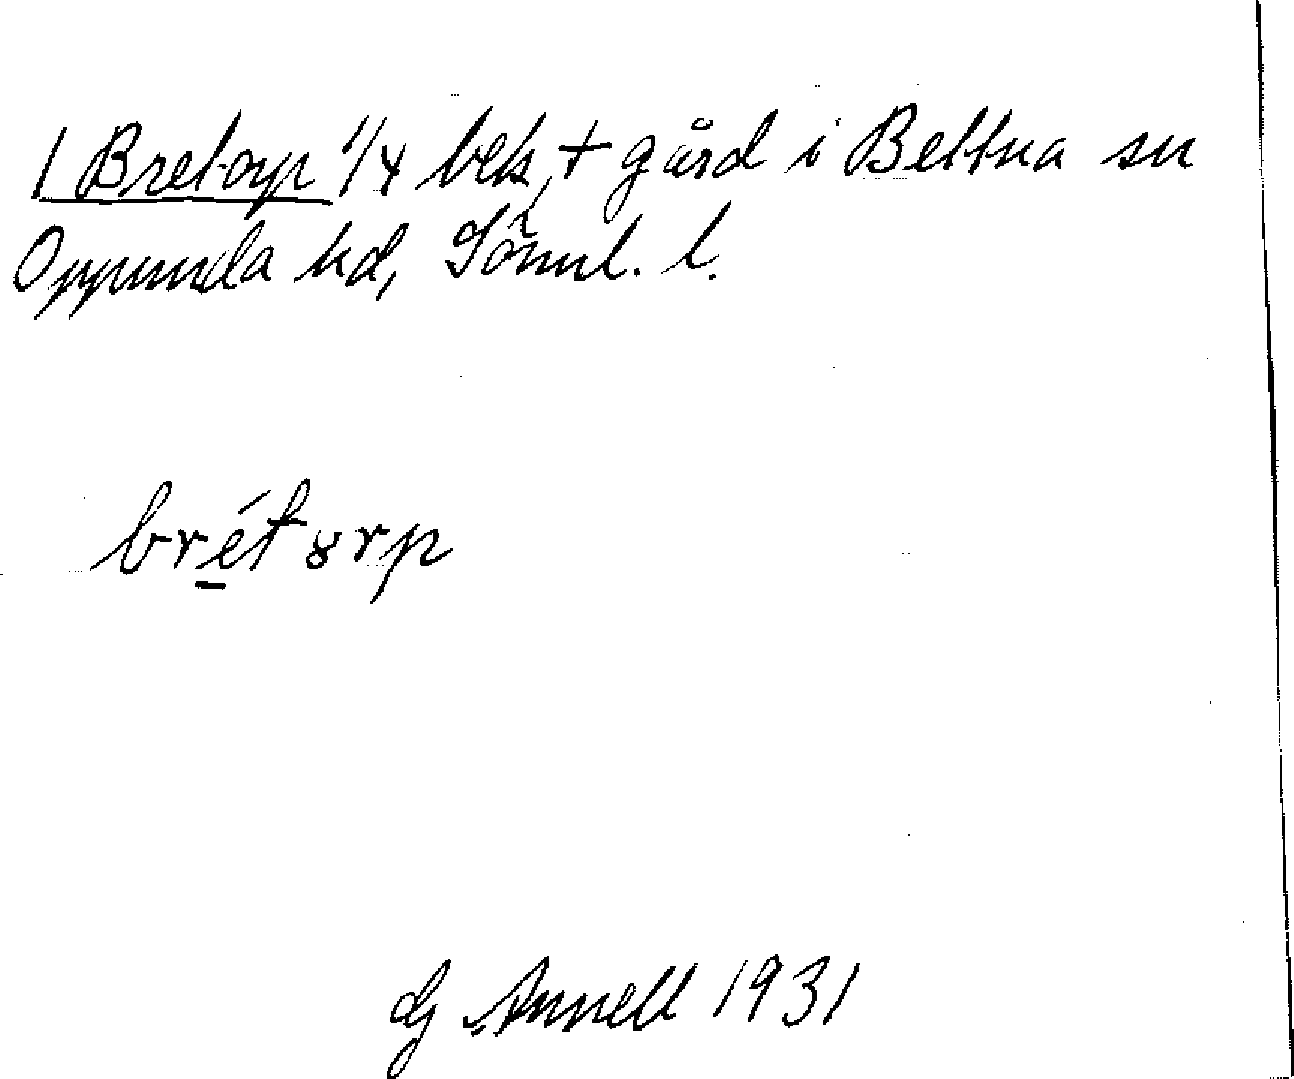 1 Bretorp 1/4 bek, + gård i Bettna sn
Oppunda hd, Söml. l.
brétȣrp
G Annell 1931